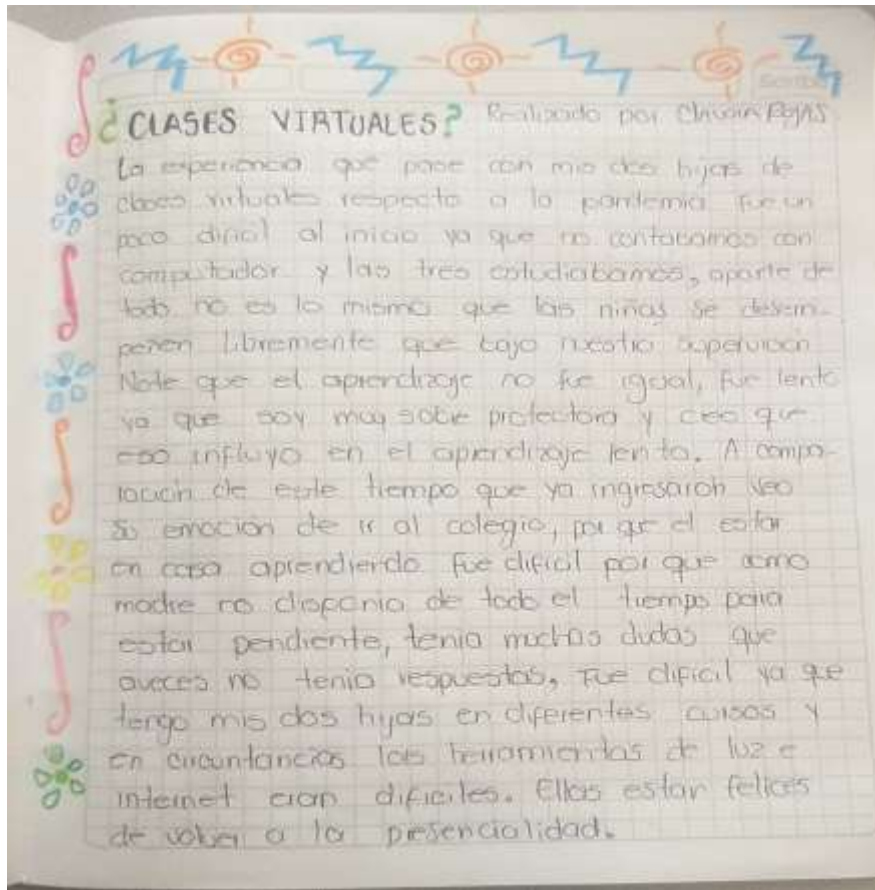 ¿CLASES VIRTUALES? Realizado por Claudia Rojas
La experiencia que pase con mis dos hijas de
clases virtuales respecto a la pandemia fue un
poco dificil al inicio ya que no contabamos con
computador y las tres estudiabamos, aparte de
todo no es lo mismo que las niñas se desem-
peñen libremente que bajo nuestra supervición
Note que el aprendizaje no fue igual, fue lento
ya que soy muy sobre protectora y creo que
eso influyo en el aprendizaje lento. A compa-
ración de este tiempo que ya ingresaron veo
su emoción de ir al colegio, por que el estar
en casa aprendiendo fue dificil por que como
madre no disponia de todo el tiempo para
estar pendiente, tenia muchas dudas que
aveces no tenia respuestas, fue dificil ya que
tengo mis dos hijas en diferentes cursos y
en circuntancias las herramientas de luz e
internet eran dificiles. Ellas estan felices
de volver a la presencialidad.